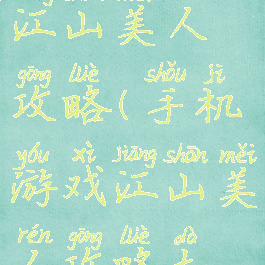 江山美人
gōng lüè shǒu jī
攻略(手机
yóu xì jiāng shān měi
游戏江山美
rén gōng lüè dà
人攻略大